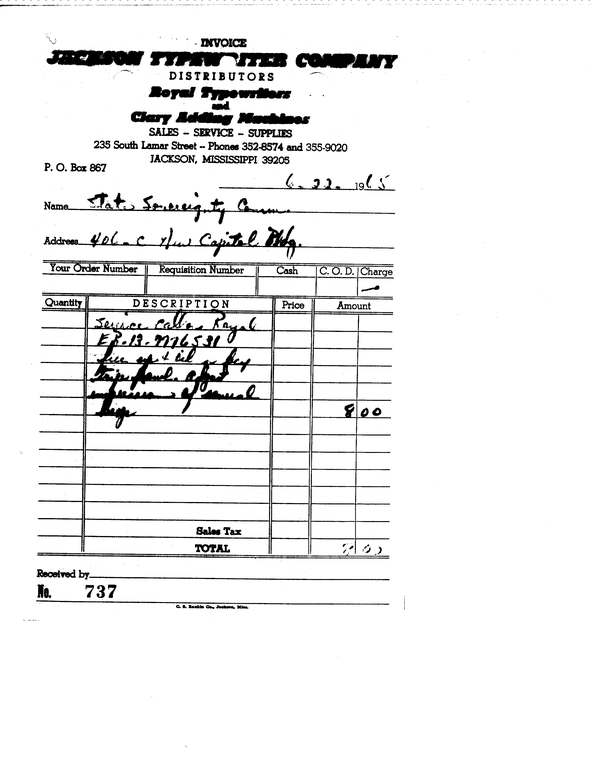 INVOICE
JACKSON TYPEWRITER COMPANY
DISTRIBUTORS
Royal Typewriters
and
Clary Adding Machines
SALES – SERVICE – SUPPLIES
235 South Lamar Street – Phones 352-8574 and 355-9020
JACKSON, MISSISSIPPI 39205
P. O. Box 867
6-22-1965
Name State Sovereignty Comm.
Address 406-C New Capitol Bldg.
Your Order Number Requisition Number Cash C. O. D. Charge
Quantity DESCRIPTION Price Amount
Service Call on Royal
EP-13-7776531
up & oil key
adjust
of several
keys 8 00
Sales Tax
TOTAL 8 00
Received by
No. 737
C. S. Rankin Co., Jackson, Miss.